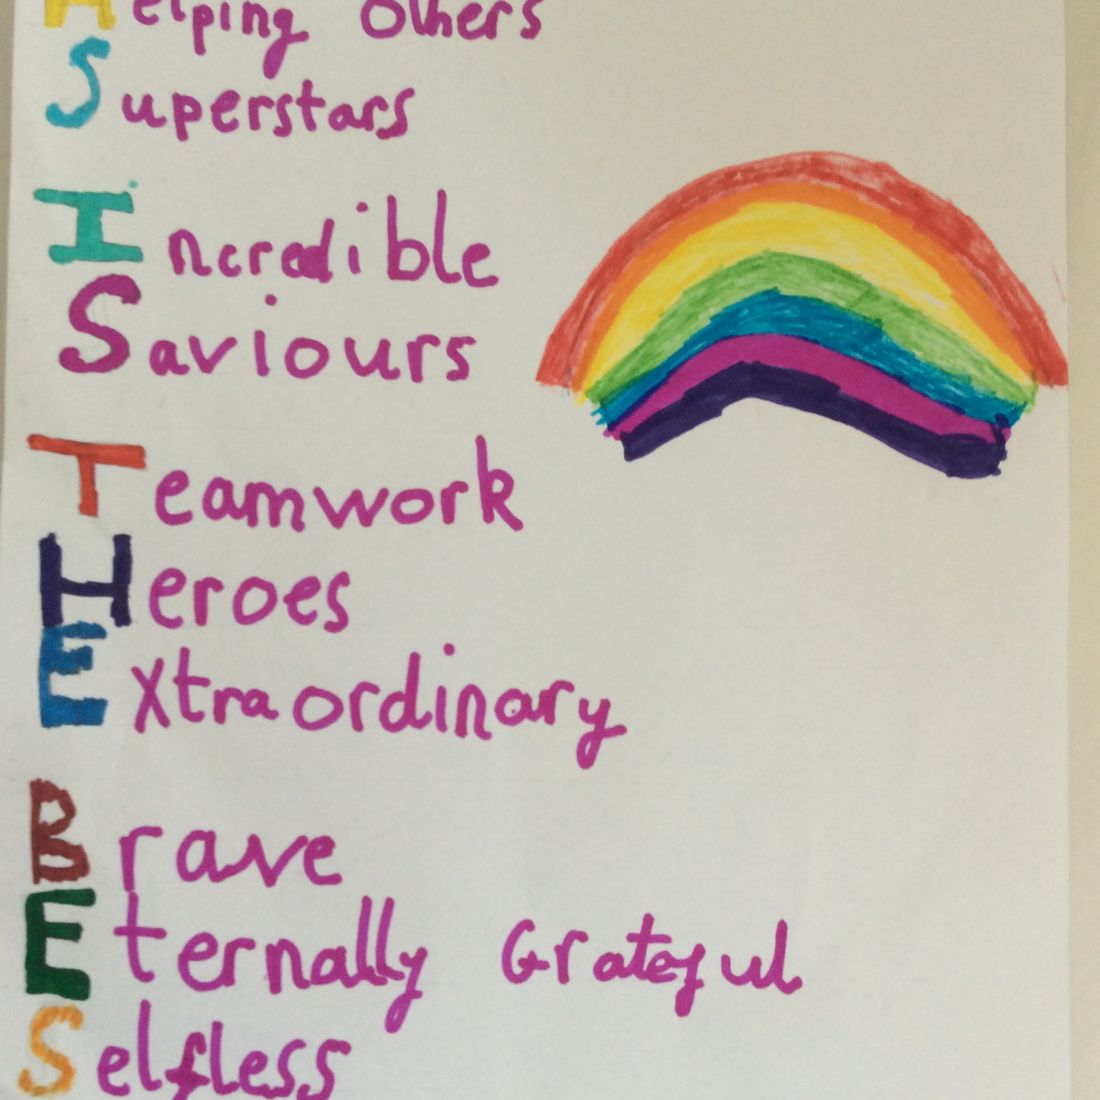 Helping Others
Superstars
Incredible
Saviours
Teamwork
Heroes
Extraordinary
Brave
Eternally Grateful
Selfless